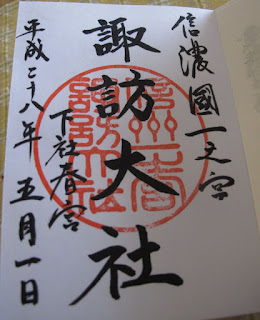 信濃國一之宮
諏訪大社
下社春宮
平成二十八年 五月一日